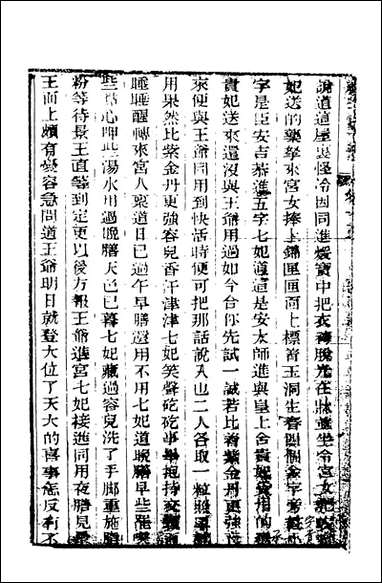 說道這屋裏怪冷因同進煖寶中把衣褲脫光在牀並坐令宮女把
妃送的藥拏來宮女捧上錦匣匣面上標着玉洞生春四個金字
字是臣安吉恭進五字七妃道這是安太師進與皇上舍貴妃
貴妃送來還沒與王爺用過如今台你先試一試若比着紫金丹更強
來便與王爺同用到快活時便可把那話說入也二人各取一粒
用果然比紫金丹更強容兒香汗津津七妃笑聲矻矻事畢抱持
睡睡醒轉來宮人稟道日已過午早膳還用不用七妃道晚膳早些罷
些點心呷些湯水用過晚膳天色已暮七妃藏過容兒洗了手脚重施
粉等待景王直等到定更以後方報王爺進宮七妃接進同用夜膳見
王面上頗有憂容急問道王爺明日就登大位了天大的喜事怎反有不